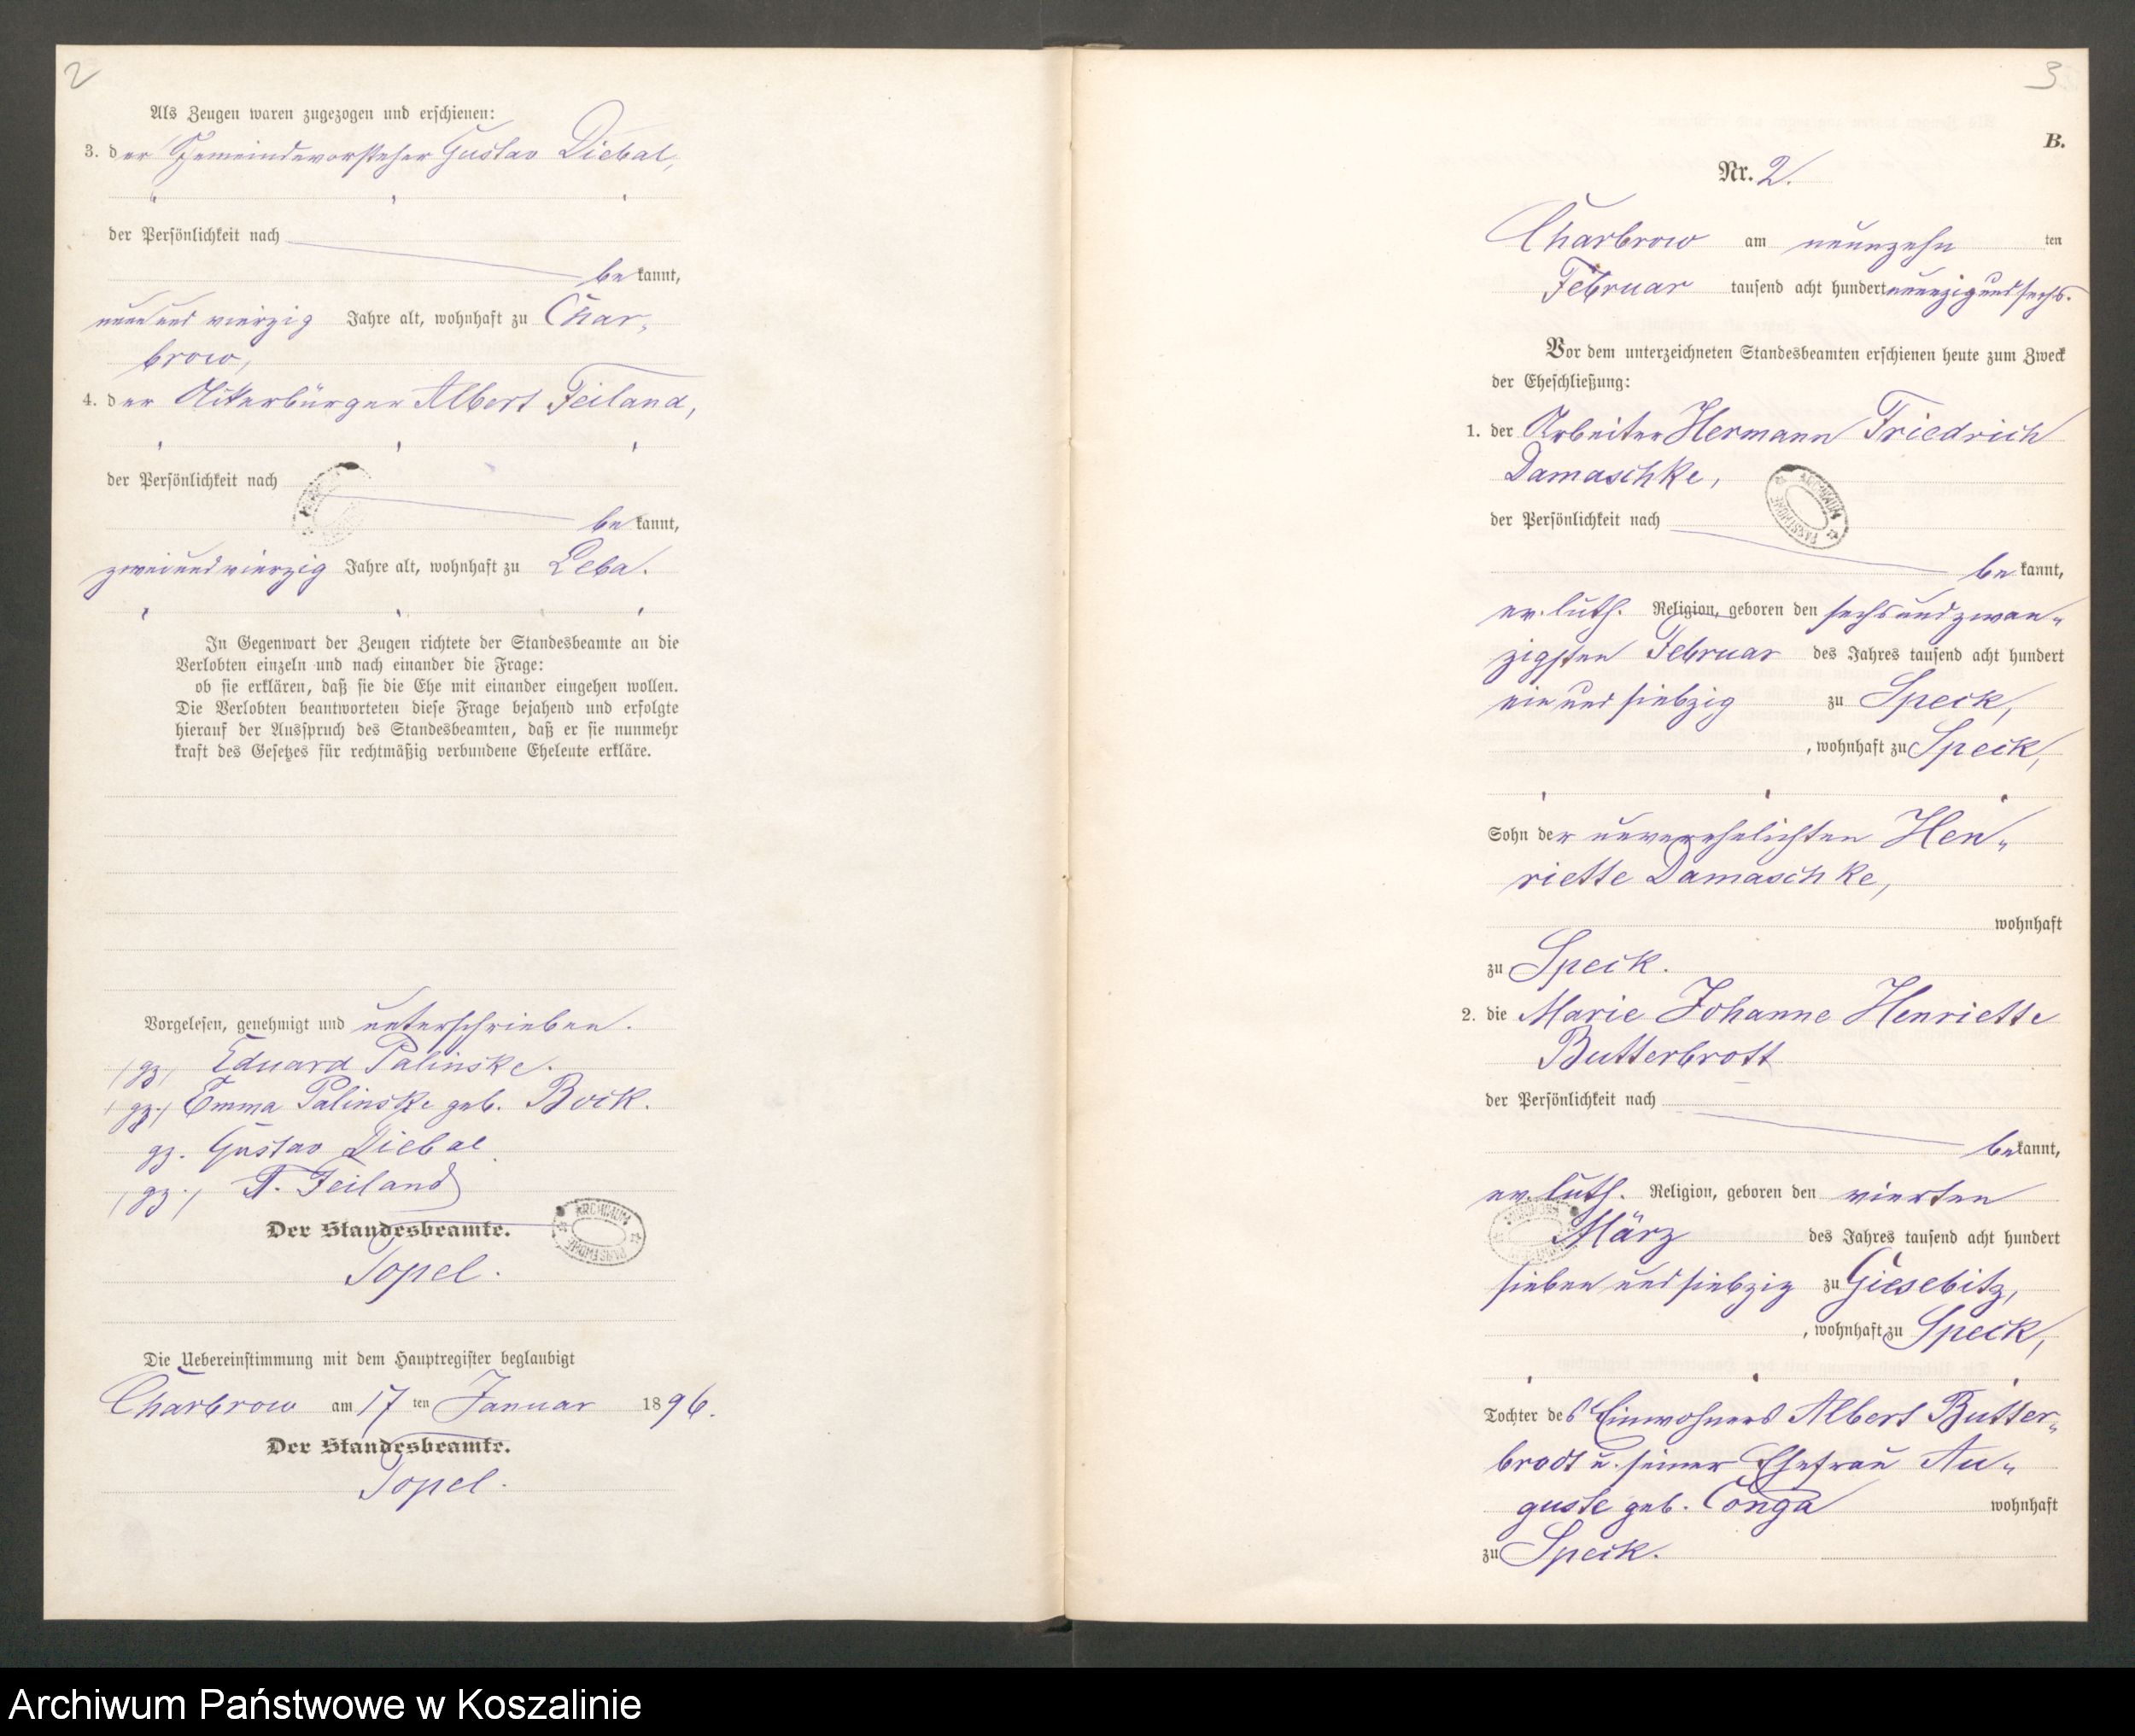 2
Als Zeugen waren zugezogen und erschienen:
3. der Gemeindevorsteher Gustav Diebal,
der Persönlichkeit nach
bekannt,
neunundvierzig Jahre alt, wohnhaft zu Char-
brow,
4. der Ackerbürger Albert Feiland,
der Persönlichkeit nach
bekannt,
zweiundvierzig Jahre alt, wohnhaft zu Leba.
In Gegenwart der Zeugen richtete der Standesbeamte an die
Verlobten einzeln und nach einander die Frage:
ob sie erklären, daß sie die Ehe mit einander eingehen wollen.
Die Verlobten beantworteten diese Frage bejahend und erfolgte
hierauf der Ausspruch des Standesbeamten, daß er sie nunmehr
kraft des Gesetzes für rechtmäßig verbundene Eheleute erkläre.
Vorgelesen, genehmigt und unterschrieben.
/gz/ Eduard Palinske.
/gz./ Emma Palinske geb. Bock.
gz. Gustav Diebal
/gz./ A. Feiland
Der Standesbeamte.
Topel.
ARCHIWUM PAŃSTWOWE
Die Uebereinstimmung mit dem Hauptregister beglaubigt
Charbrow am 17 ten Januar 1896.
Der Standesbeamte.
Topel.
3
B.
Nr. 2.
Charbrow am neunzehn ten
Februar tausend acht hundert neunzig und sechs.
Vor dem unterzeichneten Standesbeamten erschienen heute zum Zweck
der Eheschließung:
1. der Arbeiter Hermann Friedrich
Damaschke,
ARCHIWUM PAŃSTWOWE
der Persönlichkeit nach
bekannt,
ev. luth. Religion, geboren den sechsundzwan-
zigsten Februar des Jahres tausend acht hundert
ein und siebzig zu Speck,
, wohnhaft zu Speck,
Sohn der unverehelichten Hen-
riette Damaschke,
wohnhaft
zu Speck.
2. die Marie Johanne Henriette
Butterbrott
der Persönlichkeit nach
bekannt,
ev. luth. Religion, geboren den vierten
März des Jahres tausend acht hundert
sieben und siebzig zu Giesebitz,
, wohnhaft zu Speck,
Tochter des Einwohners Albert Butter-
brodt u. seiner Ehefrau Au-
guste geb. Conga wohnhaft
zu Speck.
Archiwum Państwowe w Koszalinie